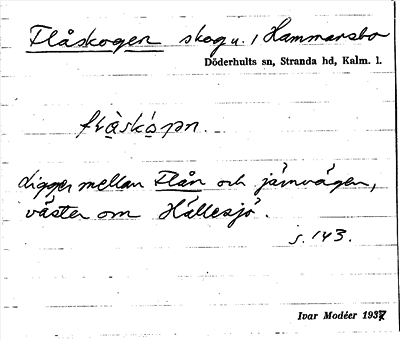 Flåskogen skog u. / Hammarsbo
Döderhults sn, Stranda hd, Kalm. l.
Ligger mellan Flån och järnvägen,
väster om Hällesjö.
s. 143.
Ivar Modéer 1937